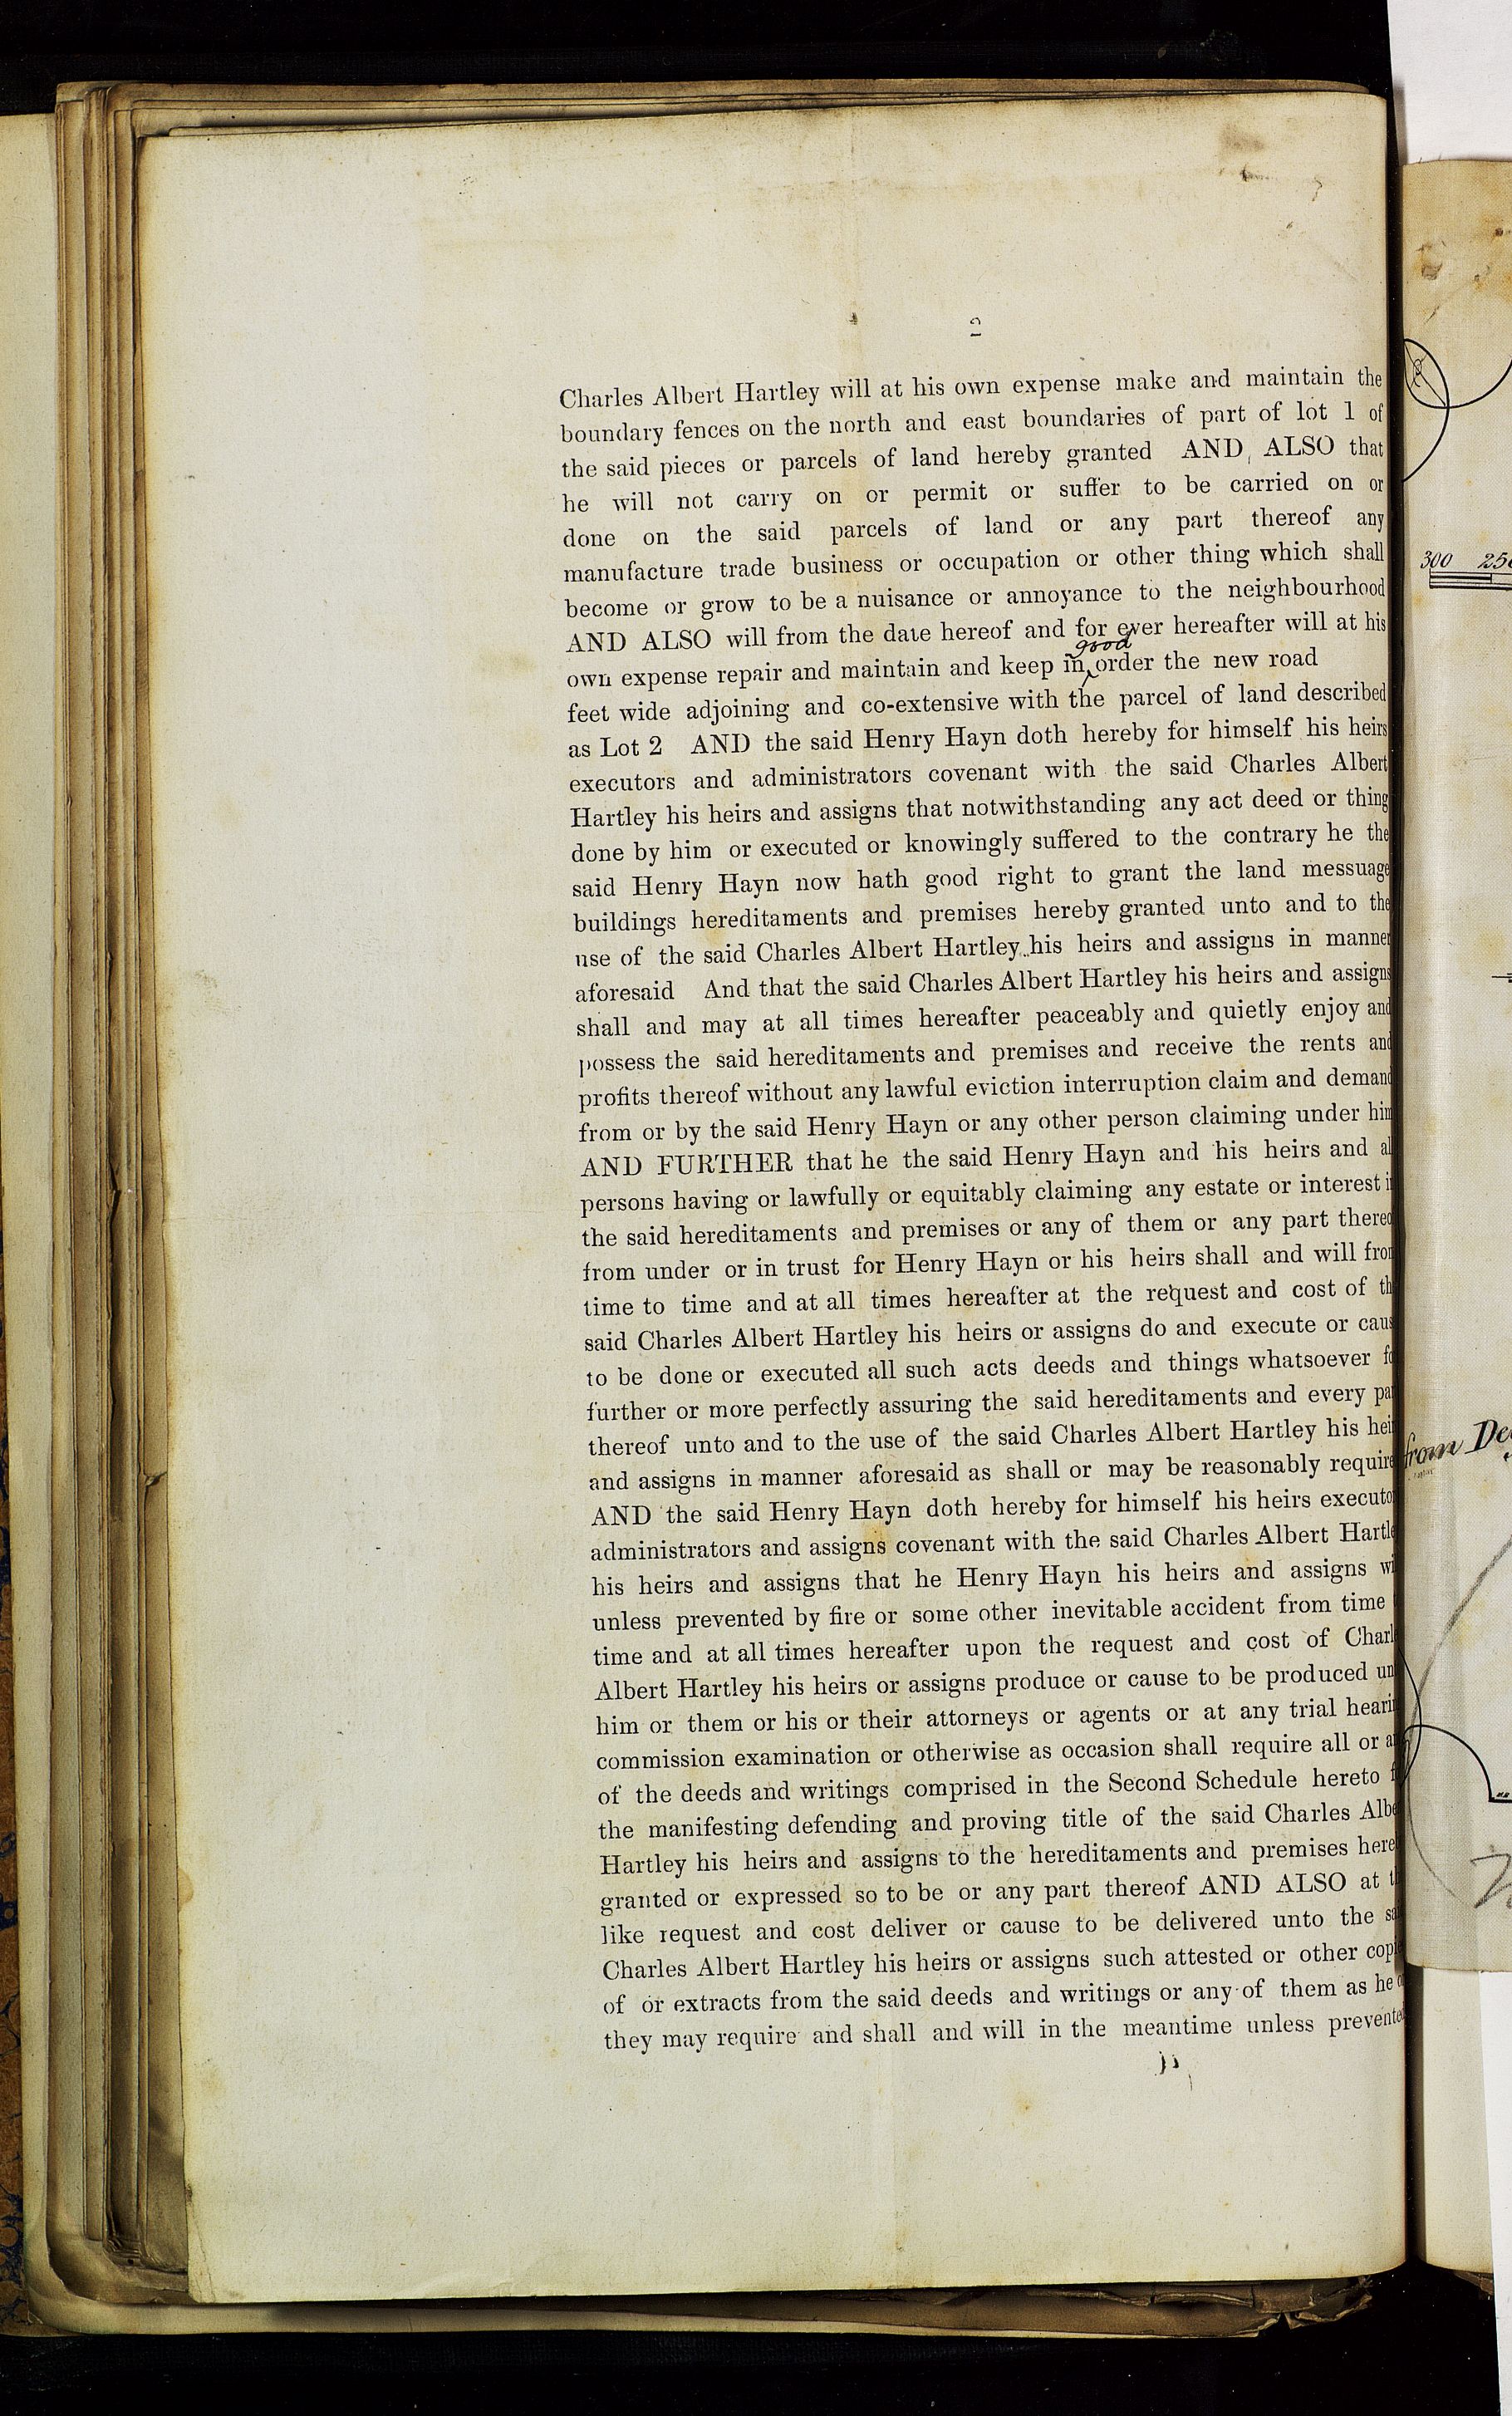 2
Charles Albert Hartley will at his own expense make and maintain the
boundary fences on the north and east boundaries of part of lot 1 of
the said pieces or parcels of land hereby granted AND, ALSO that
he will not carry on or permit or suffer to be carried on or
done on the said parcels of land or any part thereof any
manufacture trade business or occupation or other thing which shall
become or grow to be a nuisance or annoyance to the neighbourhood
AND ALSO will from the date hereof and for ever hereafter will at his
good
own expense repair and maintain and keep in order the new road
feet wide adjoining and co-extensive with the parcel of land described
as Lot 2 AND the said Henry Hayn doth hereby for himself his heirs
executors and administrators covenant with the said Charles Albert
Hartley his heirs and assigns that notwithstanding any act deed or thing
done by him or executed or knowingly suffered to the contrary he the
said Henry Hayn now hath good right to grant the land messuage
buildings hereditaments and premises hereby granted unto and to the
use of the said Charles Albert Hartley his heirs and assigns in manner
aforesaid And that the said Charles Albert Hartley his heirs and assigns
shall and may at all times hereafter peaceably and quietly enjoy and
possess the said hereditaments and premises and receive the rents and
profits thereof without any lawful eviction interruption claim and demand
from or by the said Henry Hayn or any other person claiming under him
AND FURTHER that he the said Henry Hayn and his heirs and al
persons having or lawfully or equitably claiming any estate or interest i
the said hereditaments and premises or any of them or any part thereo
from under or in trust for Henry Hayn or his heirs shall and will from
time to time and at all times hereafter at the request and cost of th
said Charles Albert Hartley his heirs or assigns do and execute or caus
to be done or executed all such acts deeds and things whatsoever fo
further or more perfectly assuring the said hereditaments and every par
thereof unto and to the use of the said Charles Albert Hartley his heir
and assigns in manner aforesaid as shall or may be reasonably require
AND the said Henry Hayn doth hereby for himself his heirs executo
administrators and assigns covenant with the said Charles Albert Hartle
his heirs and assigns that he Henry Hayn his heirs and assigns wi
unless prevented by fire or some other inevitable accident from time
time and at all times hereafter upon the request and cost of Charl
Albert Hartley his heirs or assigns produce or cause to be produced un
him or them or his or their attorneys or agents or at any trial heari
commission examination or otherwise as occasion shall require all or a
of the deeds and writings comprised in the Second Schedule hereto f
the manifesting defending and proving title of the said Charles Albe
Hartley his heirs and assigns to the hereditaments and premises here
granted or expressed so to be or any part thereof AND ALSO at t
like request and cost deliver or cause to be delivered unto the sa
Charles Albert Hartley his heirs or assigns such attested or other copi
of or extracts from the said deeds and writings or any of them as he o
they may require and shall and will in the meantime unless prevented
300 250
from De